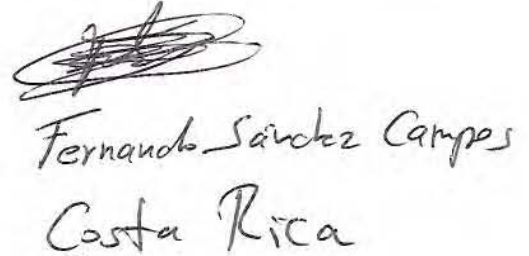 Fernando Sánchez Campos
Costa Rica